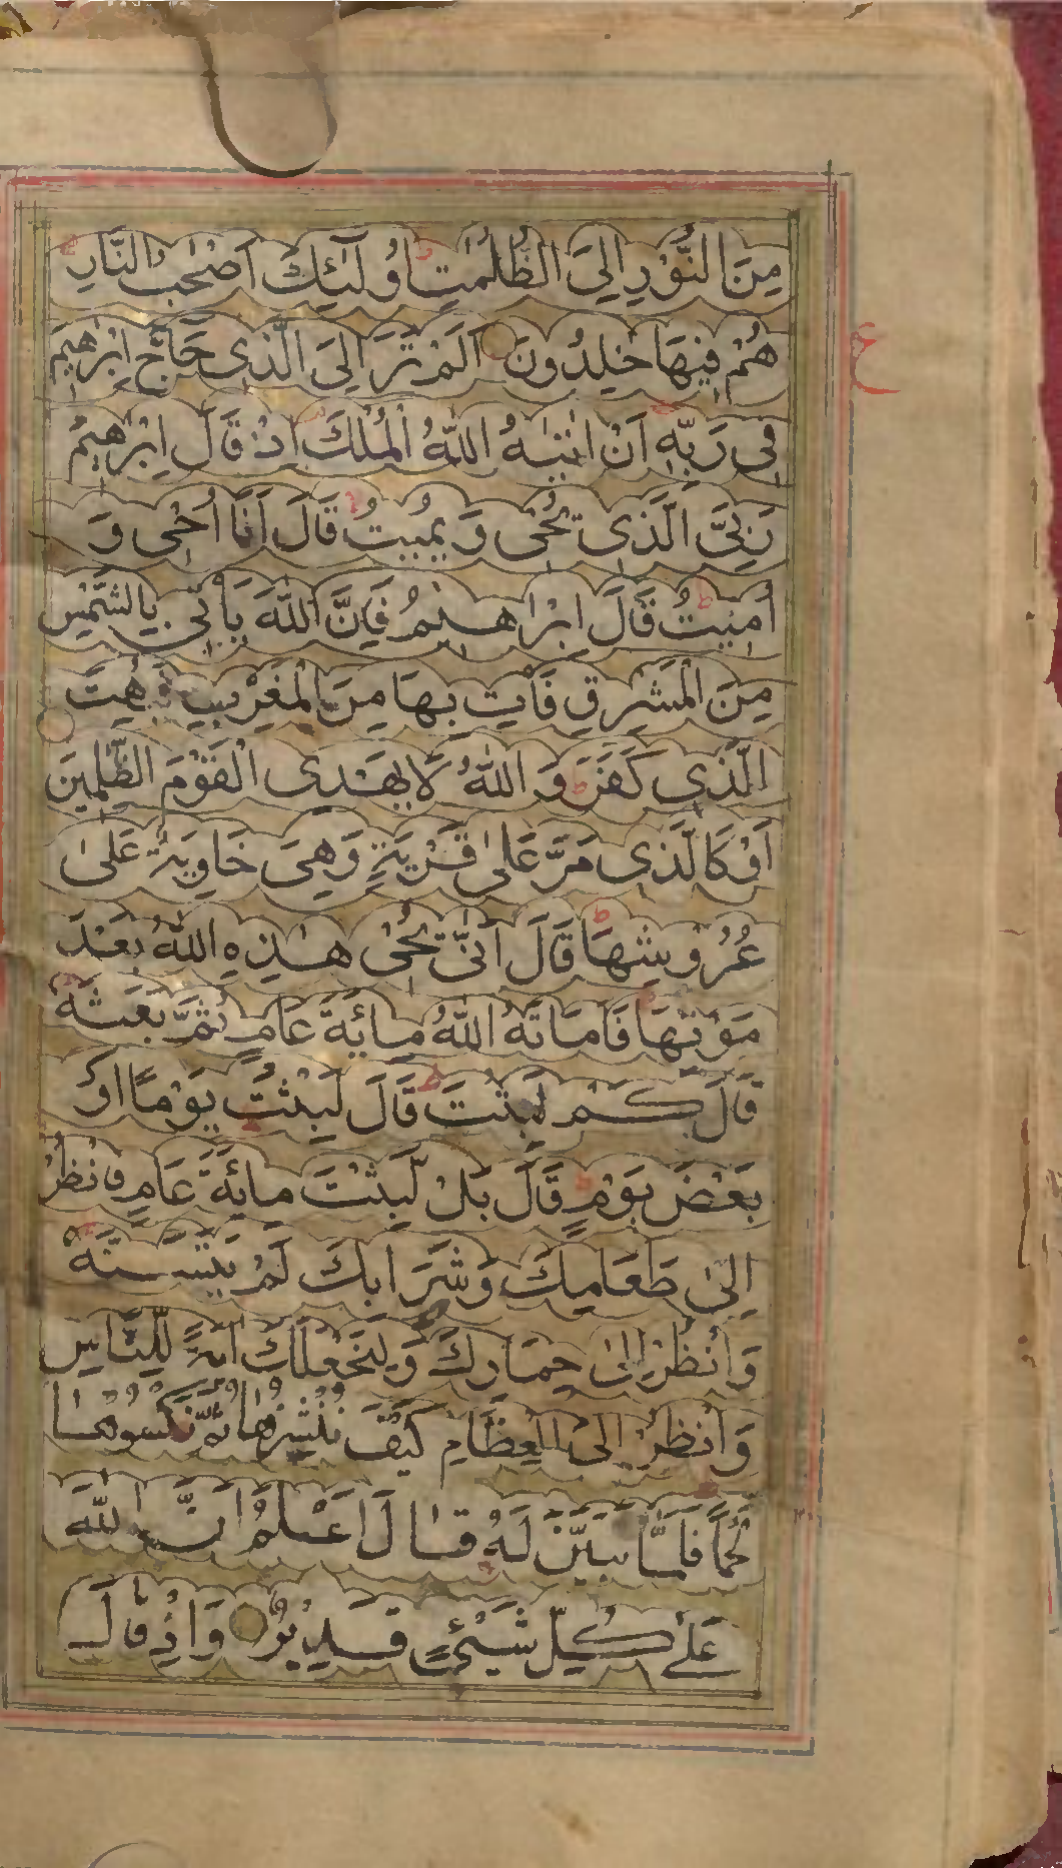 مِنَ النُّوْرِ اِلَی الظُّلُمٰتِ اُولٰٓئِكَ اَصْحٰبُ النَّارِ
هُمْ فِیْهَا خٰلِدُوْنَ اَلَمْ تَرَ اِلَی الَّذِی حَآجَّ اِبْرٰهٖمَ
فِی رَبِّهٖ اَنْ اٰتٰىهُ اللّٰهُ الْمُلْكَ اِذْ قَالَ اِبْرٰهٖمُ
رَبِّیَ الَّذِی یُحْیٖ وَ یُمِیْتُ قَالَ اَنَا اُحْیٖ وَ
اُمِیْتُ قَالَ اِبْرَاهِیْمُ فَاِنَّ اللّٰهَ یَاْتِیْ بِالشَّمْسِ
مِنَ الْمَشْرِقِ فَاْتِ بِهَا مِنَ الْمَغْرِبِ فَبُهِتَ
الَّذِی كَفَرَ وَ اللّٰهُ لَا یَهْدِی الْقَوْمَ الظّٰلِمِیْنَ
اَوْ كَالَّذِی مَرَّ عَلٰی قَرْیَةٍ وَّهِیَ خَاوِیَةٌ عَلٰی
عُرُوْشِهَا قَالَ اَنّٰی یُحْیٖ هٰذِهِ اللّٰهُ بَعْدَ
مَوْتِهَا فَاَمَاتَهُ اللّٰهُ مِائَةَ عَامٍ ثُمَّ بَعَثَهٗ
قَالَ كَمْ لَبِثْتَ قَالَ لَبِثْتُ یَوْمًا اَوْ
بَعْضَ یَوْمٍ قَالَ بَلْ لَّبِثْتَ مِائَةَ عَامٍ فَانْظُرْ
اِلٰی طَعَامِكَ وَشَرَابِكَ لَمْ یَتَسَنَّهْ
وَانْظُرْ اِلٰی حِمَارِكَ وَلِنَجْعَلَكَ اٰیَةً لِّلنَّاسِ
وَانْظُرْ اِلَی الْعِظَامِ كَیْفَ نُنْشِزُهَا ثُمَّ نَكْسُوْهَا
لَحْمًا فَلَمَّا تَبَیَّنَ لَهٗ قَالَ اَعْلَمُ اَنَّ اللّٰهَ
عَلٰی كُلِّ شَیْءٍ قَدِیْرٌ وَاِذْ قَالَ
ع